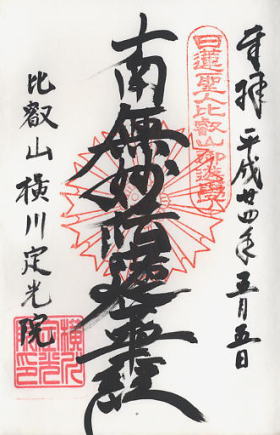 奉拝 平成廿四年五月五日
日蓮聖人比叡山御遊学
南無妙法蓮華経
比叡山横川定光院
横川
定光
院印